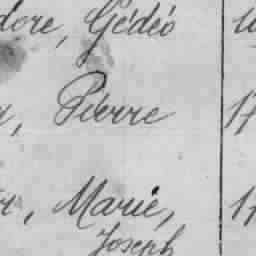 dore, Gédéo
, Pierre 17
, Marie, 17
Joseph